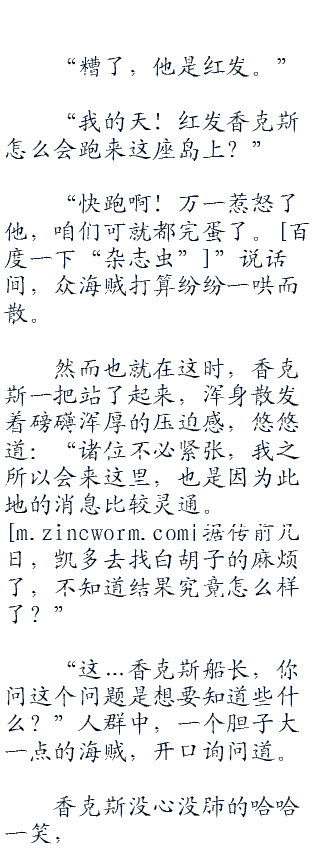 “糟了，他是红发。”
“我的天！红发香克斯
怎么会跑来这座岛上？”
“快跑啊！万一惹怒了
他，咱们可就都完蛋了。[百
度一下“杂志虫”]”说话
间，众海贼打算纷纷一哄而
散。
然而也就在这时，香克
斯一把站了起来，浑身散发
着磅礴浑厚的压迫感，悠悠
道：“诸位不必紧张，我之
所以会来这里，也是因为此
地的消息比较灵通。
[m.zincworm.com|据传前几
日，凯多去找白胡子的麻烦
了，不知道结果究竟怎么样
了？”
“这…香克斯船长，你
问这个问题是想要知道些什
么？”人群中，一个胆子大
一点的海贼，开口询问道。
香克斯没心没肺的哈哈
一笑，